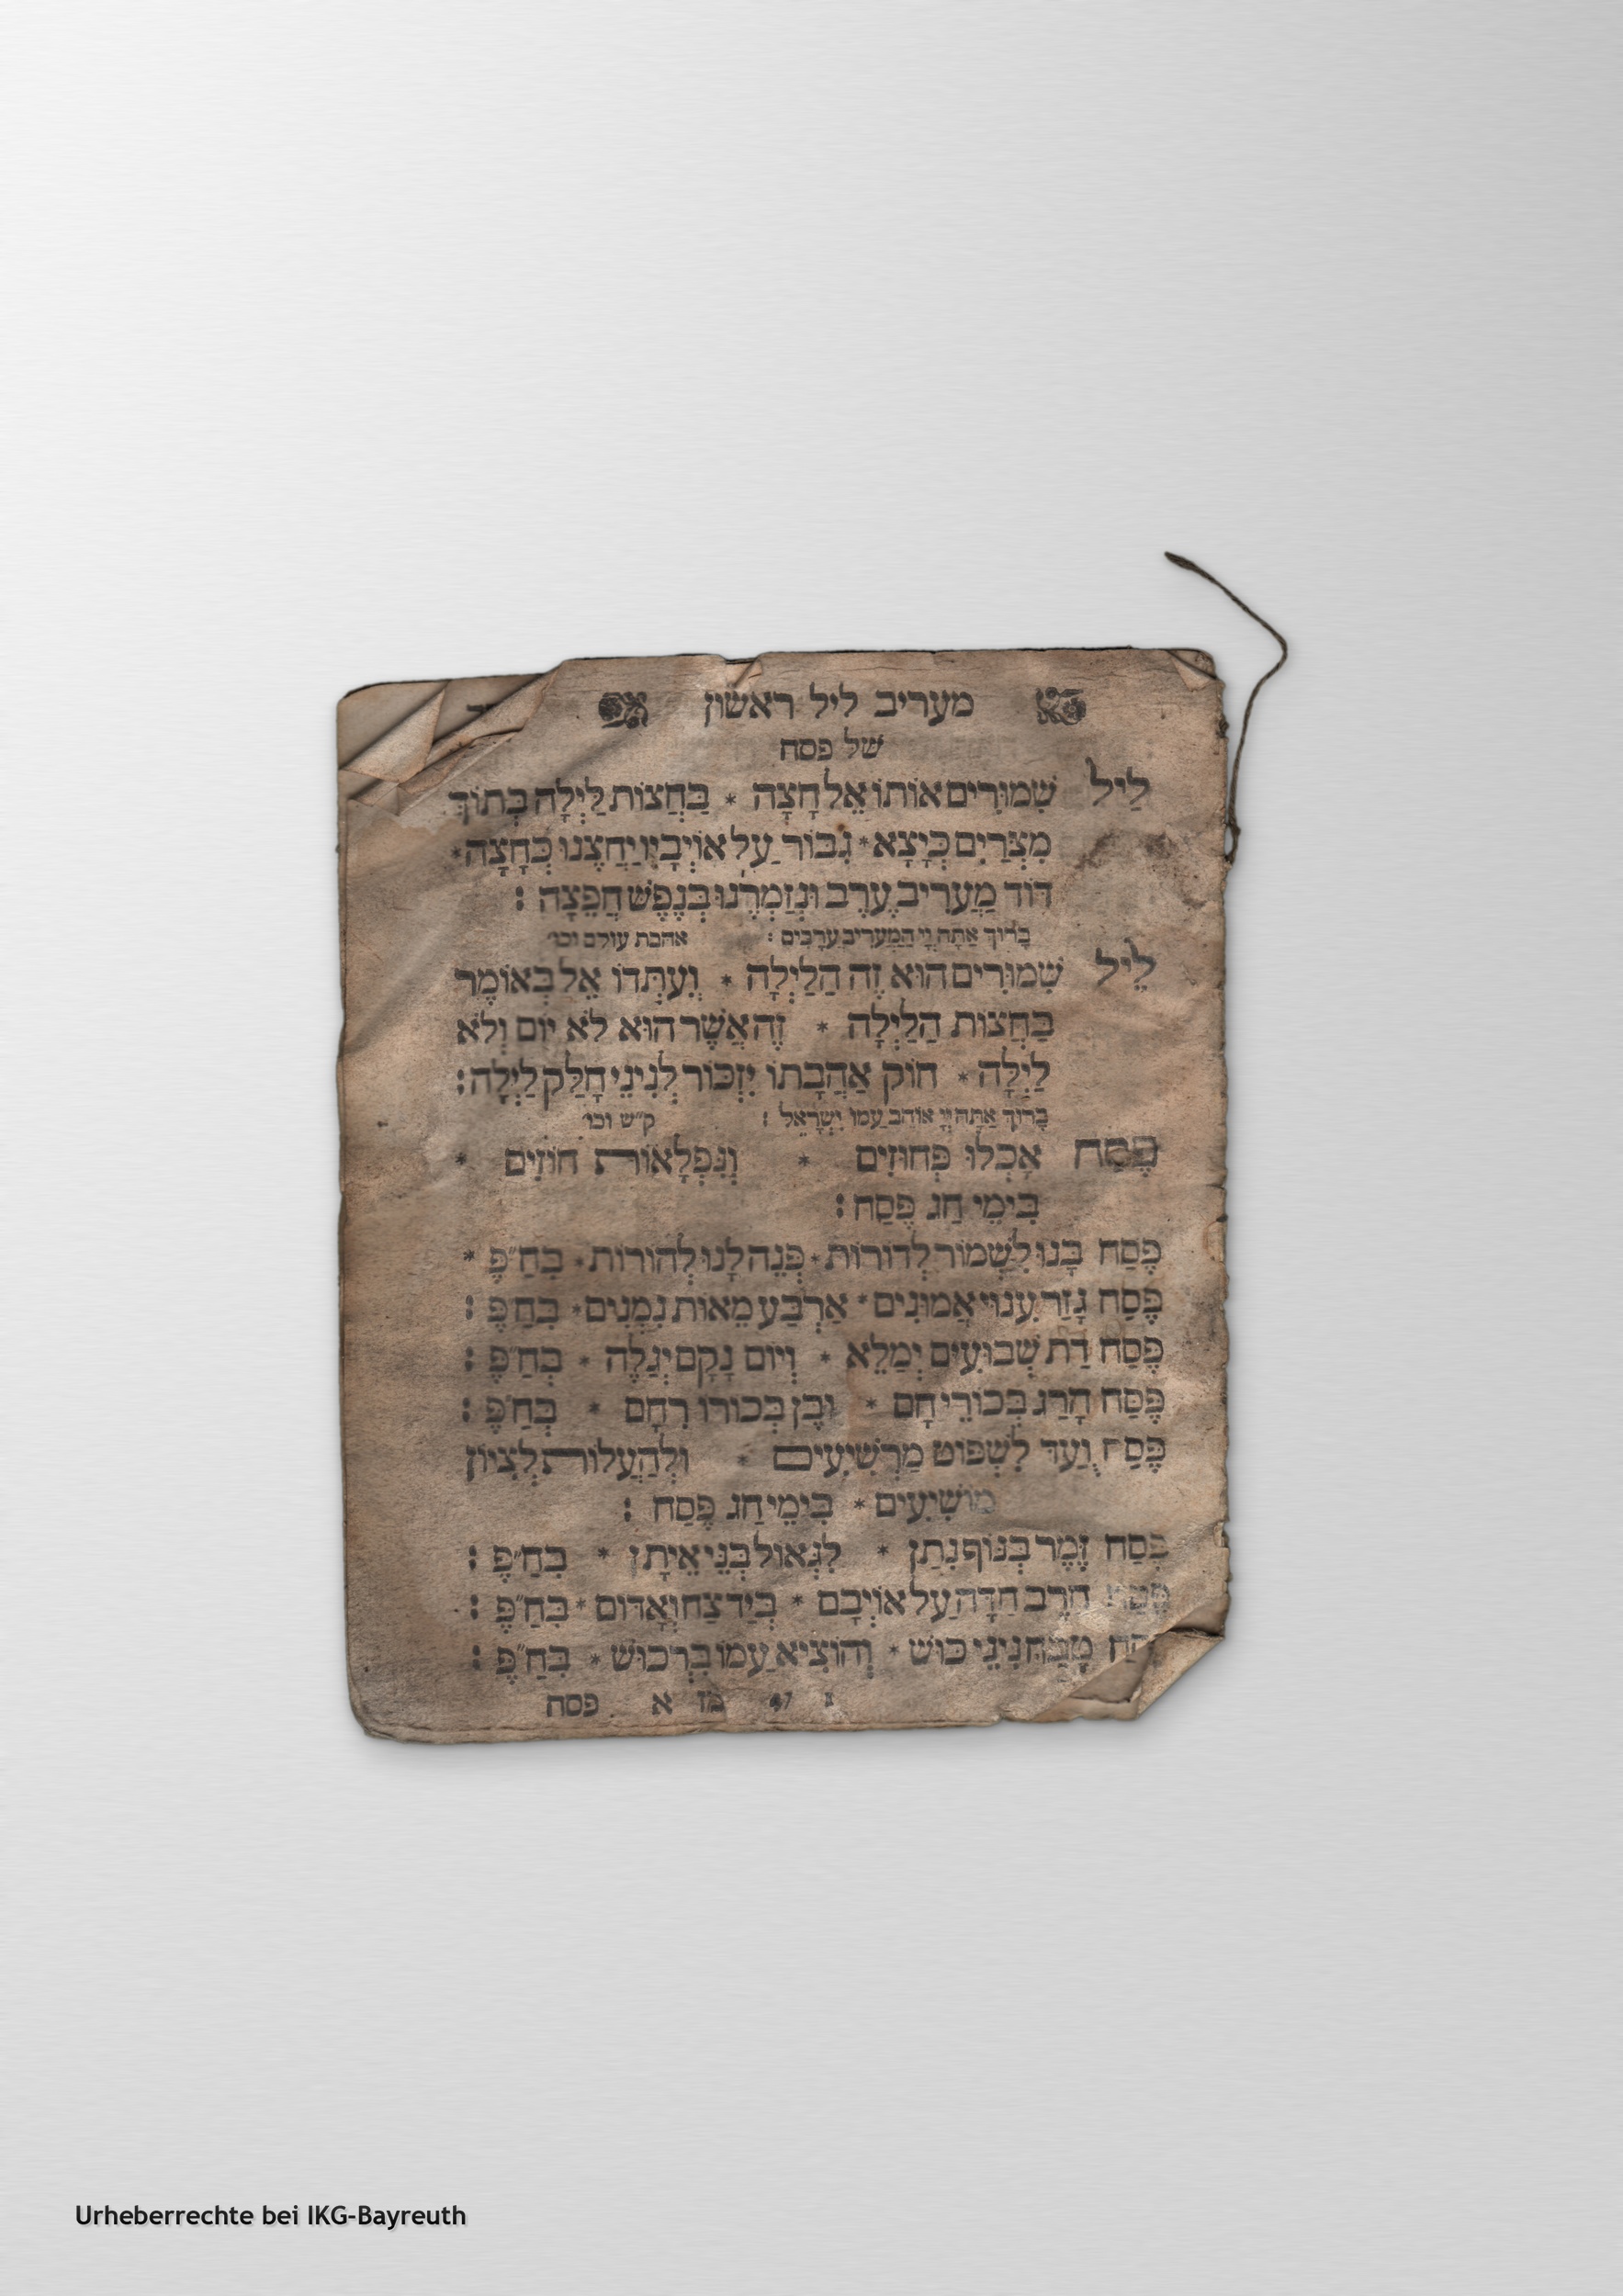 מעריב ליל ראשון
של פסח
לֵיל שִׁמוּרִים אוֹתוֹ אֵל חָצָה * בַּחֲצוֹת לַיְלָה בְּתוֹךְ
מִצְרַיִם כְּיָצָא * גִבּוֹר עַל אוֹיְבָיו יַחֲצֶנוּ כְּחָצָה *
דוֹד מַעֲרִיב עֶרֶב וּנְזַמְרֶנּוּ בְּנֶפֶשׁ חֲפֵצָה :
בָּרוּךְ אַתָּה יְיָ הַמַּעֲרִיב עֲרָבִים : אהבת עולם וכו׳
לֵיל שִׁמוּרִים הוּא זֶה הַלַיְלָה * וְעִתְּדוֹ אֵל בְּאוֹמֶר
בַּחֲצוֹת הַלַיְלָה * זֶה אֲשֶׁר הוּא לֹא יוֹם וְלֹא
לַיְלָה * חוֹק אַהֲבָתוֹ יִזְכּוֹר לְנִינֵי חָלַק לַיְלָה :
בָּרוּךְ אַתָּה יְיָ אוֹהֵב עַמּוֹ יִשְׂרָאֵל : ק״ש וכו׳
פֶּסַח אָכְלוּ פְּחוּזִים * וְנִפְלָאוֹת חוֹזִים *
בִּימֵי חַג פֶּסַח :
פֶּסַח בָּנוּ לִשְׁמוֹר לְדוֹרוֹת * פְּנֵה לָנוּ לְהוֹרוֹת * בְּחַ״פֶּ *
פֶּסַח גָזַר עִנּוּי אֲמוּנִים * אַרְבַּע מֵאוֹת נִמְנִים * בְּחַ״פֶּ :
פֶּסַח דַת שְׁבוּעִים יְמַלֵא * וְיוֹם נָקָם יְגַלֶה * בְּחַ״פֶּ :
פֶּסַח הָרַג בְּכוֹרֵי חָם * וּבֶן בְּכוֹרוֹ רִחָם * בְּחַ״פֶּ :
פֶּסַח וְעַד לִשְׁפּוֹט מַרְשִׁיעִים * וּלְהַעֲלוֹת לְצִיוֹן
מוֹשִׁיעִים * בִּימֵי חַג פֶּסַח :
פֶּסַח זֶמֶר בְּנוֹף נִתַּן * לִגְאוֹל בְּנֵי אֵיתָן * בְּחַ״פֶּ :
פֶּסַח חֶרֶב חַדָּה עַל אוֹיְבָם * בְּיַד צַח וְאָדוֹם * בְּחַ״פֶּ :
טָבַח נִינֵי כּוּשׁ * וְהוֹצִיא עַמּוֹ בִּרְכוּשׁ * בְּחַ״פֶּ :
מז א פסח
Urheberrechte bei IKG-Bayreuth